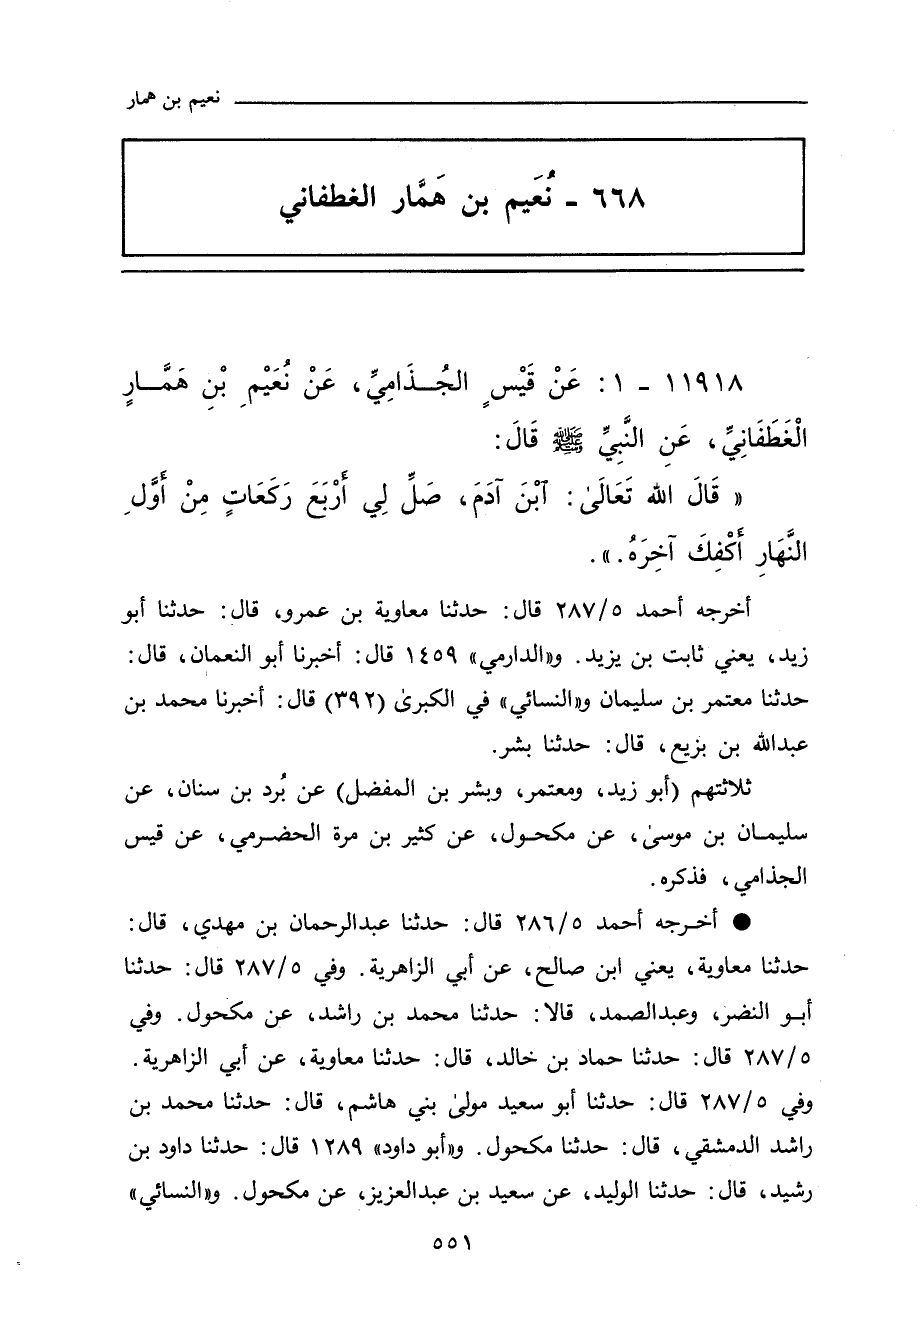 نعيم بن همار
٦٦٨ - نُعَيم بن هَمَّار الغطفاني
١١٩١٨ - ١: عَنْ قَيْسٍ الجُـذَامِيِّ، عَنْ نُعَيْمِ بْنِ هَمَّـارٍ
الْغَطَفَانِيِّ، عَنِ النَّبِيِّ ﷺ قَالَ:
« قَالَ الله تَعَالَىٰ: آبْنَ آدَمَ، صَلِّ لِي أَرْبَعَ رَكَعَاتٍ مِنْ أَوَّلِ
النَّهَارِ أَكْفِكَ آخِرَهُ.».
أخرجه أحمد ٢٨٧/٥ قال: حدثنا معاوية بن عمرو، قال: حدثنا أبو
زيد، يعني ثابت بن يزيد. و«الدارمي» ١٤٥٩ قال: أخبرنا أبو النعمان، قال:
حدثنا معتمر بن سليمان و«النسائي» في الكبرىٰ (٣٩٢) قال: أخبرنا محمد بن
عبدالله بن بزيع، قال: حدثنا بشر.
ثلاثتهم (أبو زيد، ومعتمر، وبشر بن المفضل) عن بُرد بن سنان، عن
سليمـان بن موسىٰ، عن مكحـول، عن كثير بن مرة الحضـرمي، عن قيس
الجذامي، فذكره.
● أخـرجه أحمد ٢٨٦/٥ قال: حدثنا عبدالرحمان بن مهدي، قال:
حدثنا معاوية، يعني ابن صالح، عن أبي الزاهرية. وفي ٢٨٧/٥ قال: حدثنا
أبـو النضر، وعبدالصمد، قالا: حدثنا محمد بن راشد، عن مكحول. وفي
٢٨٧/٥ قال: حدثنا حماد بن خالد، قال: حدثنا معاوية، عن أبي الزاهرية.
وفي ٢٨٧/٥ قال: حدثنا أبو سعيد مولىٰ بني هاشم، قال: حدثنا محمد بن
راشد الدمشقي، قال: حدثنا مكحول. و«أبو داود» ١٢٨٩ قال: حدثنا داود بن
رشيد، قال: حدثنا الوليد، عن سعيد بن عبدالعزيز، عن مكحول. و«النسائي»
٥٥١